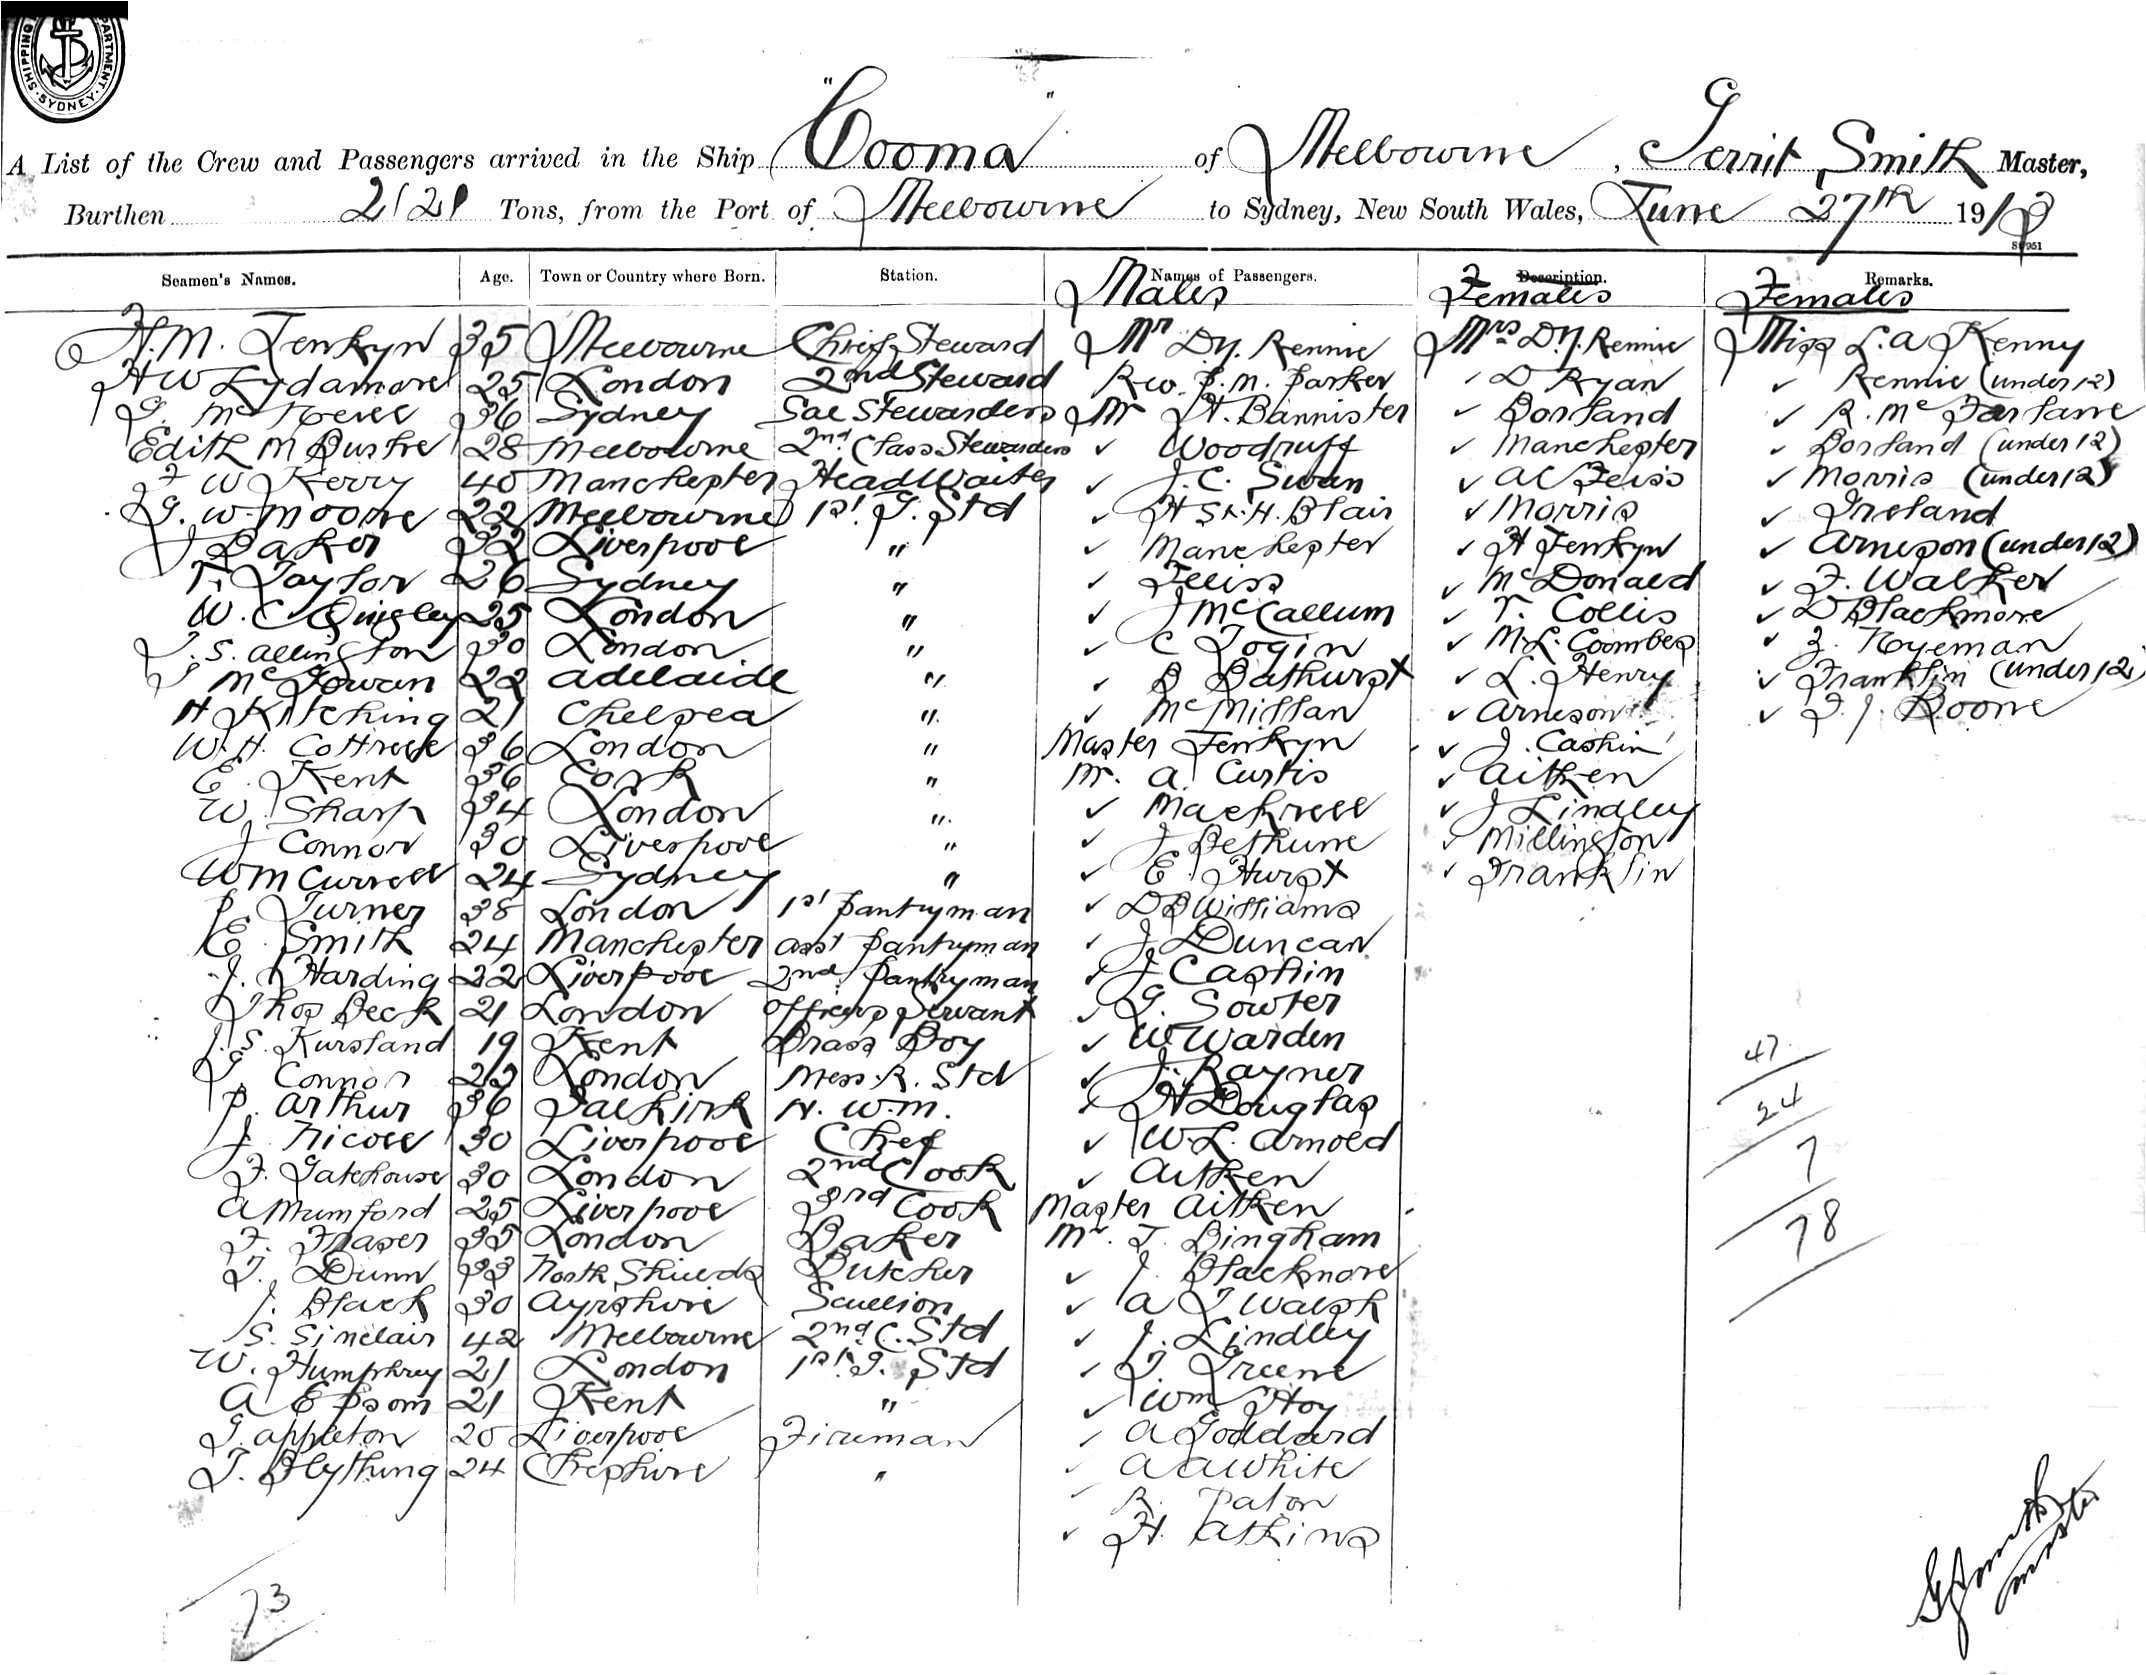 SHIPPING DEPARTMENT SYDNEY
A List of the Crew and Passengers arrived in the Ship "Cooma" of Melbourne, Gerrit Smith Master,
Burthen 2121 Tons, from the Port of Melbourne to Sydney, New South Wales, June 27th 191
Seamen's Names. Age. Town or Country where Born. Station. Names of Passengers. Description. Remarks.
Males Females Females
H.M. Jenkyn 35 Melbourne Chief Steward Mr D.Y. Rennie Mrs D.Y. Rennie Miss L.A Kenny
H W Lydamore 25 London 2nd Steward Rev. P.M. Parker ✓ D Ryan ✓ Rennie (under 12)
36 Sydney Sal Stewardess Mr H. Bannister ✓ Borland ✓ R. McFarlane
Edith M Burke 28 Melbourne 2nd Class Stewardess ✓ Woodruff ✓ Manchester ✓ Borland (under 12)
F W Kerry 40 Manchester Head Waiter ✓ J.C. Swan ✓ AC Feiss ✓ Morris (under 12)
G. W. Moore 22 Melbourne 1st. S. Std ✓ H St. H. Blair ✓ Morris ✓ Ireland
J Baker 32 Liverpool " ✓ Manchester ✓ H Jenkyn ✓ Arneson (under 12)
T. Taylor 26 Sydney " ✓ Feiss ✓ McDonald ✓ F. Walker
W. C. Quigley 25 London " ✓ J McCallum ✓ T. Collis ✓ D Blackmore
J. S. Allington 30 London " ✓ C Togin ✓ M.L. Coombes ✓ Z. Noyeman
J McGowan 22 Adelaide " ✓ B Bathurst ✓ L. Henry ✓ Franklin (under 12)
H Kitching 21 Chelsea " ✓ McMillan ✓ Arneson ✓ F. J. Boone
W.H. Cottrell 36 London " Master Jenkyn ✓ J. Cashin
E. Kent 36 Cork " Mr. A. Curtis ✓ Aitken
W. Sharp 34 London " ✓ Mackrell ✓ J Lindley
J Connor 30 Liverpool " ✓ J Bethune ✓ Millington
Wm Currell 24 Sydney " ✓ E. Hurst ✓ Franklin
P Turner 38 London 1st Pantryman ✓ D B Williams
E. Smith 24 Manchester Asst Pantryman ✓ J Duncan
J. Harding 22 Liverpool 2nd Pantryman ✓ J Cashin
Thos Beck 21 London Officers Servant ✓ G. Sowter
J. S. Kursland 19 Kent Brass Boy ✓ W Warden
J. Connor 22 London Mess. R. Std ✓ J. Rayner
P. Arthur 36 Falkirk N. W.M. ✓ H Douglas
J. Nicoll 30 Liverpool Chef ✓ W.L. Arnold
F. Gatehouse 30 London 2nd Cook ✓ Aitken
A Mumford 25 Liverpool 3rd Cook Master Aitken
F. Fraser 35 London Baker Mr. T. Bingham
T. Dunn 33 North Shields Butcher ✓ J. Blackmore
J. Black 30 Ayrshire Scullion ✓ A J Walsh
S. Sinclair 42 Melbourne 2nd C. Std ✓ J. Lindley
W. Humphrey 21 London 1st S. Std ✓ T. Greene
A Epsom 21 Kent " ✓ Wm Hoy
T. Appleton 20 Liverpool Fireman ✓ A Goddard
T. Blything 24 Cheshire " ✓ A A White
✓ R. Paton
✓ H. Atkins
47
24
7
78
73
G Smith
master